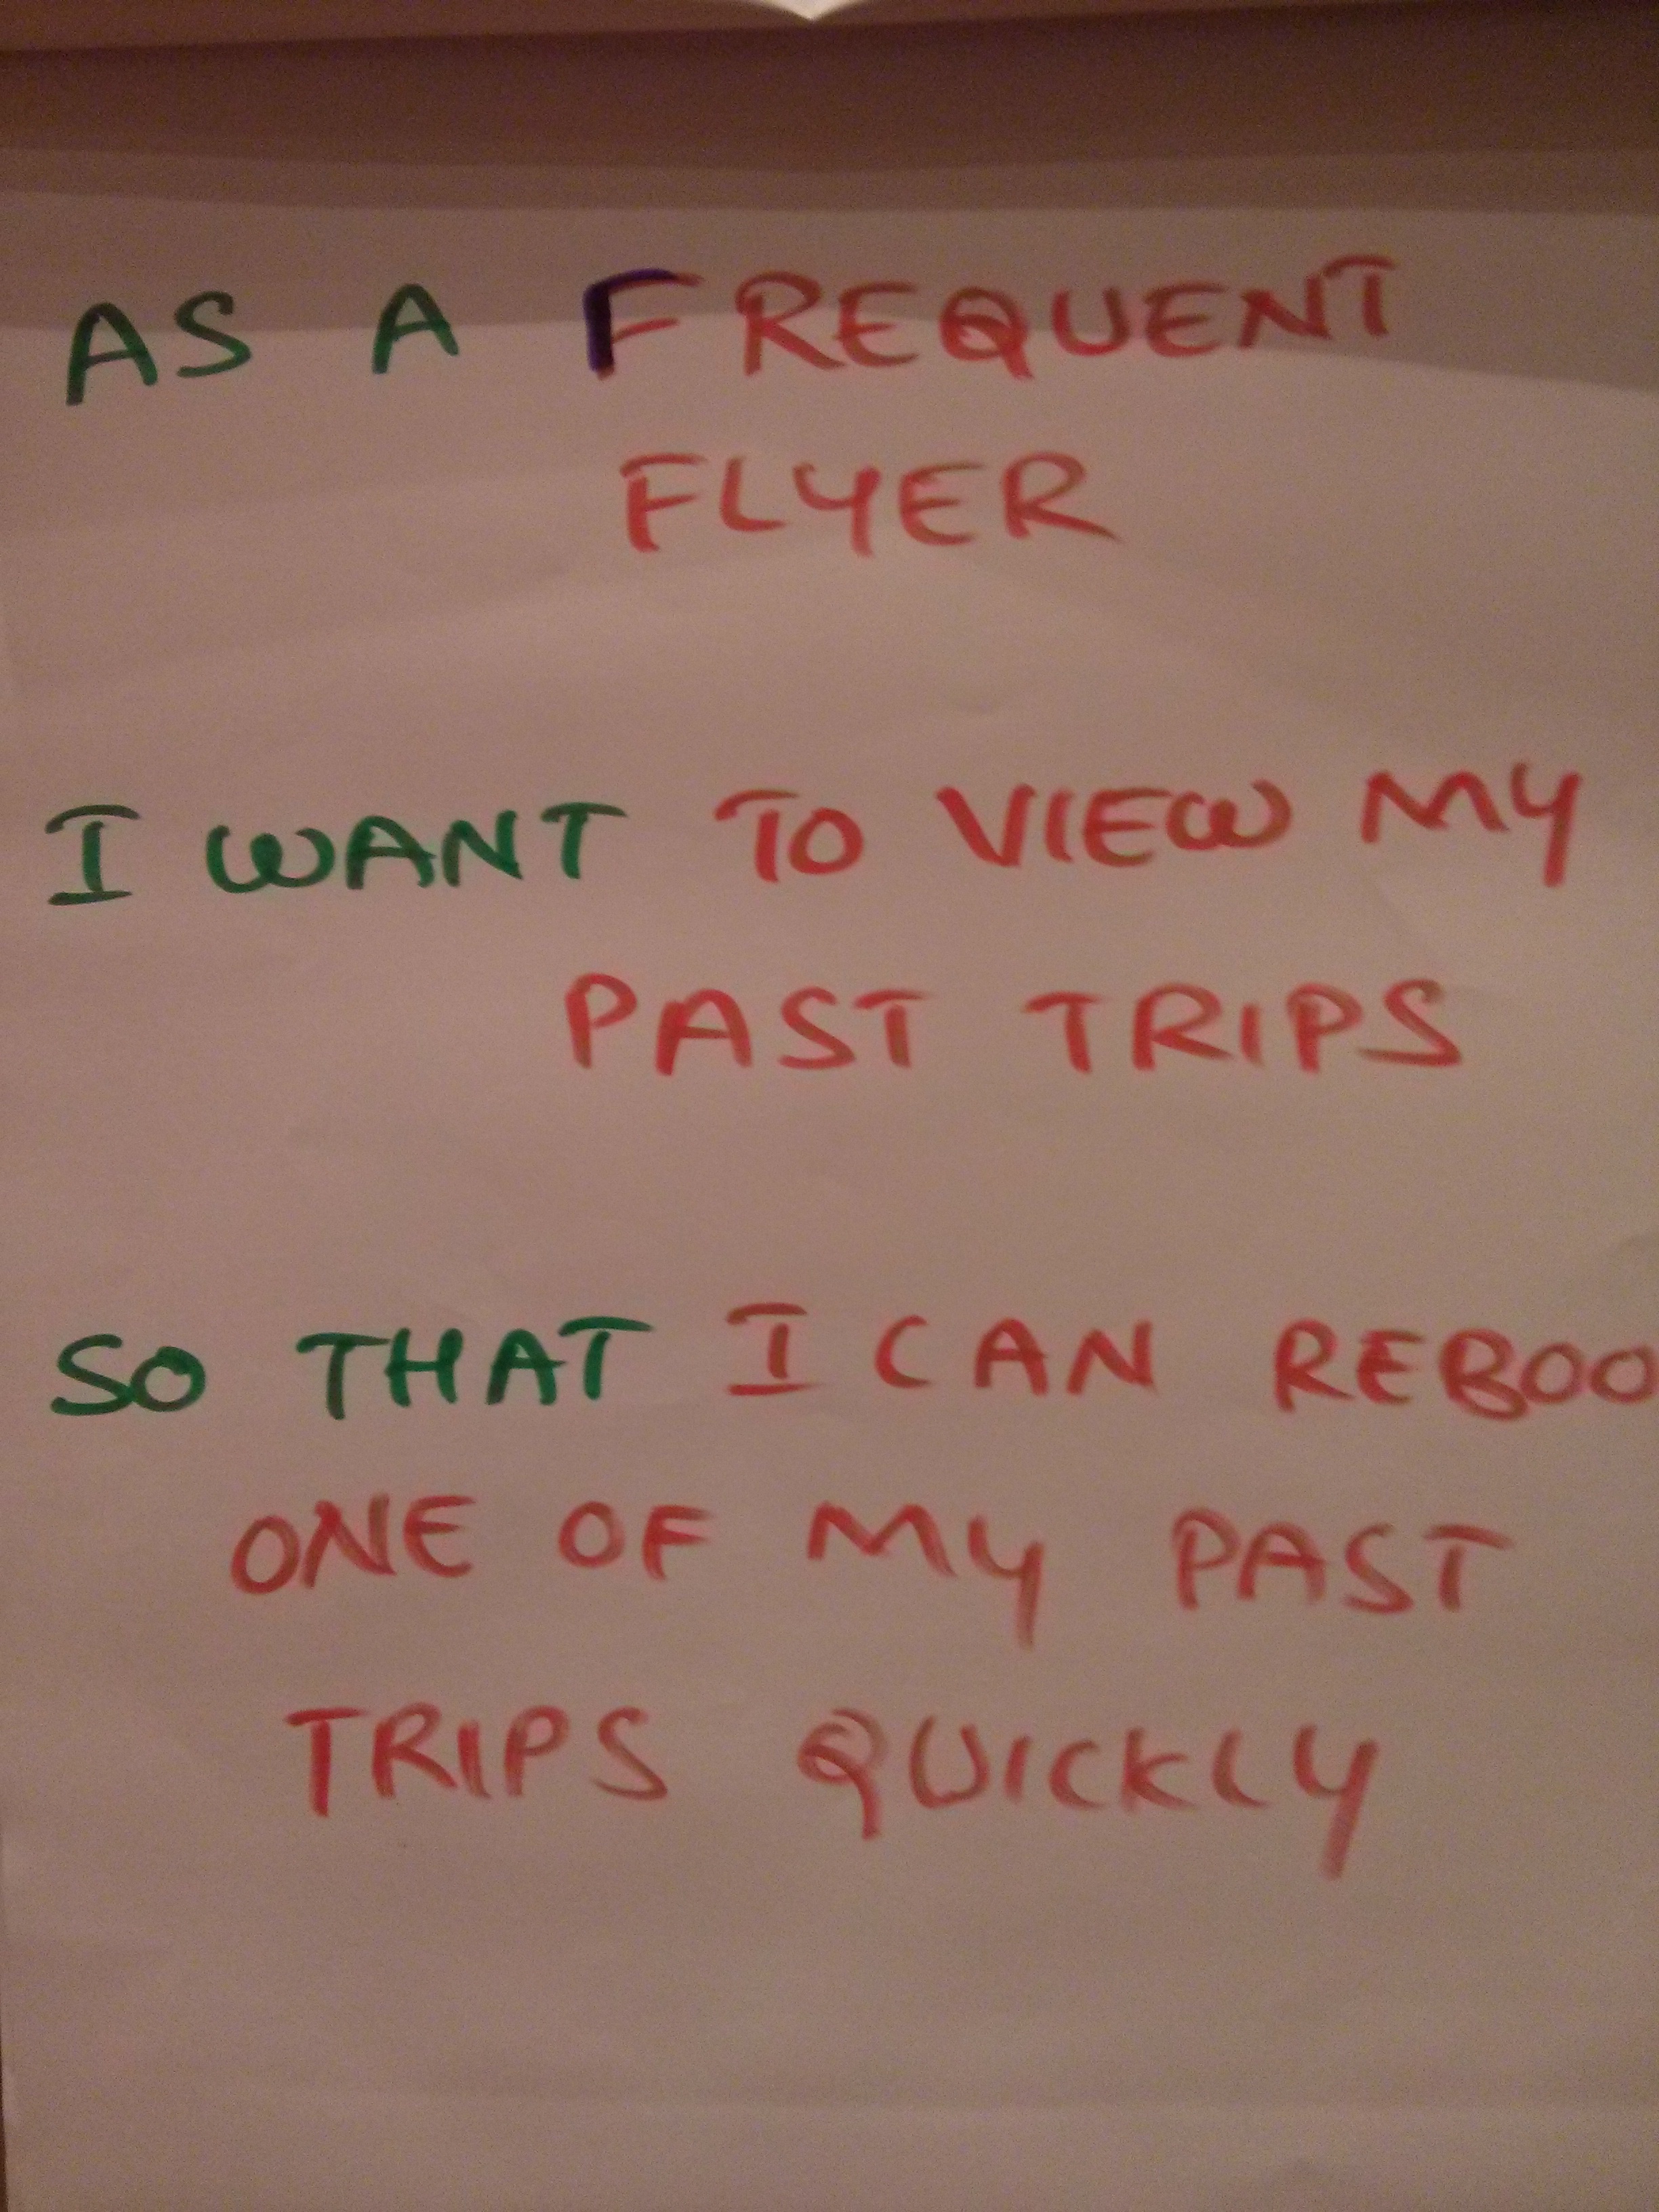 AS A FREQUENT
FLYER
I WANT TO VIEW MY
PAST TRIPS
SO THAT I CAN REBOO
ONE OF MY PAST
TRIPS QUICKLY